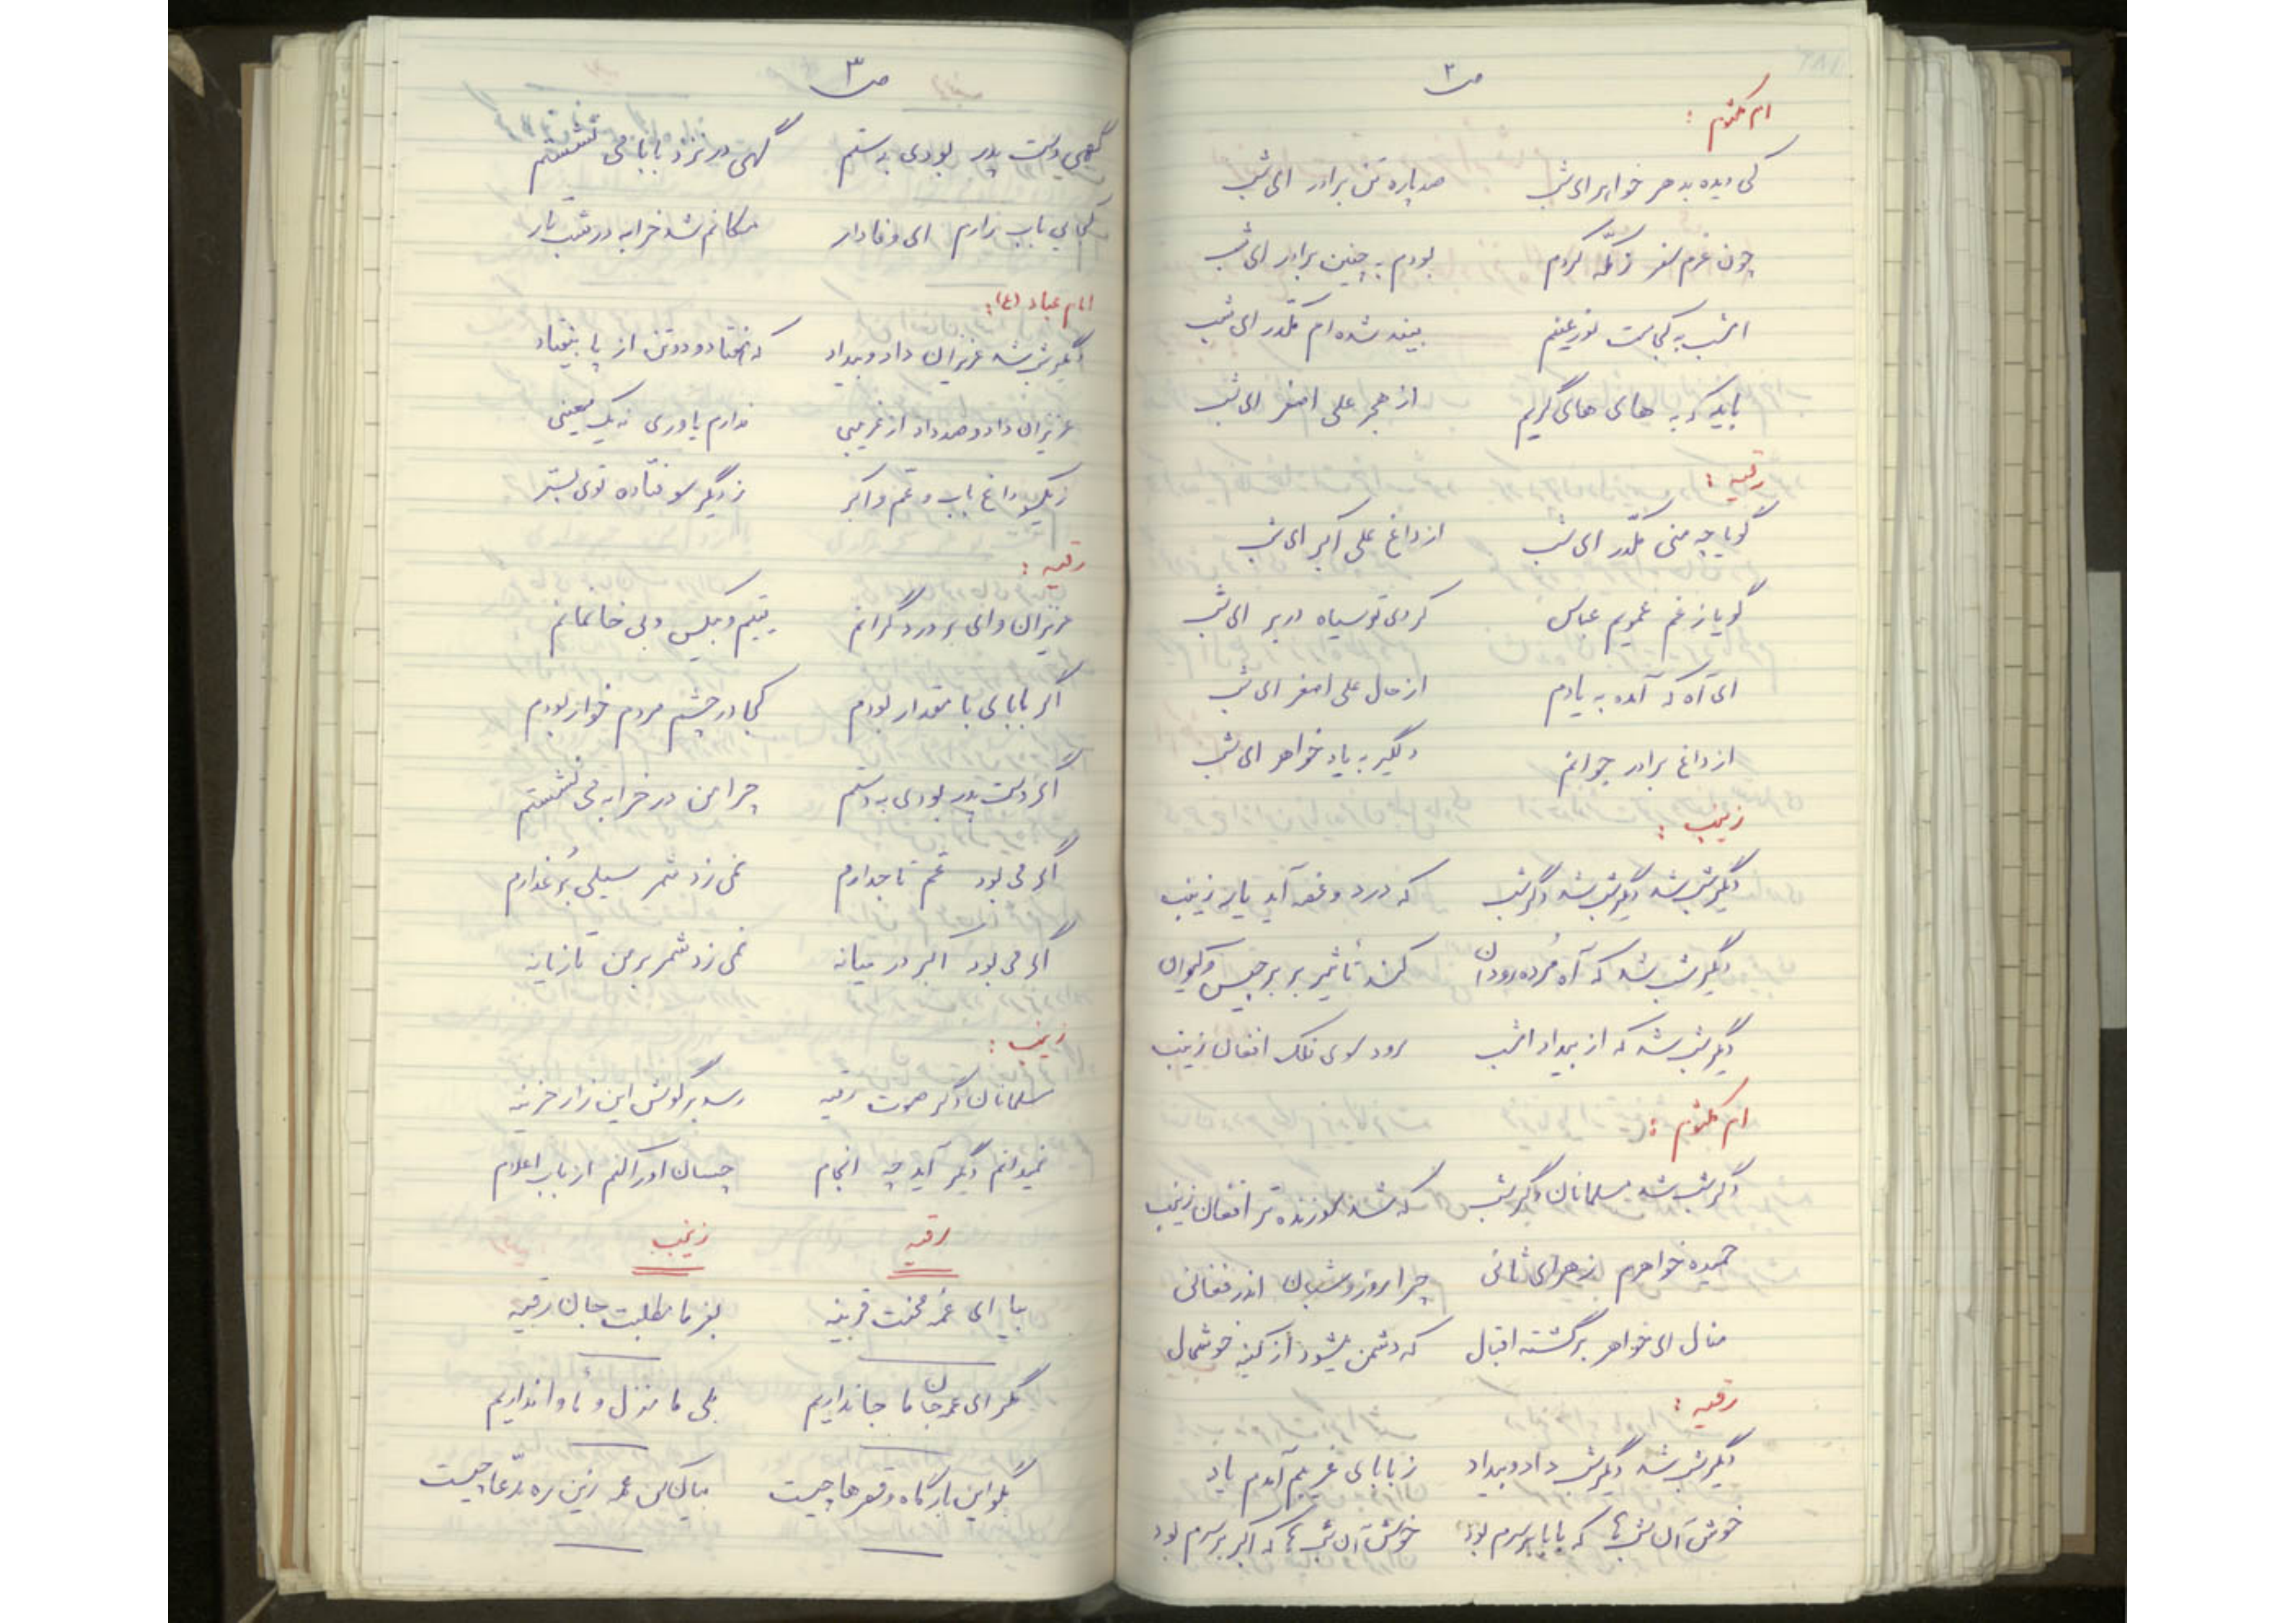 ص ۲
ام کلثوم :
کی دیده بدهر خواهر ای شب صد پاره تن برادر ای شب
چون عزم سفر ز مکّه کردم بودم به چنین برادر ای شب
امشب به کجاست نور عینم بینید شده ام مکدر ای شب
باید که به های های گریم از هجر علی اصغر ای شب
رقیه :
گویا چه منی مکدّر ای شب از داغ علی اکبر ای شب
گویا ز غم عمویم عباس کردی تو سیاه در بر ای شب
ای آه که آمده به یادم از حال علی اصغر ای شب
از داغ برادر جوانم دلگیر به یاد خواهر ای شب
زینب :
دیگر شب شد دیگر شب شد دگر شب که درد و غصه آید یار زینب
دیگر شب شد که آه مُرده رودان کند تأثیر بر برجیس و کیوان
دیگر شب شد که از بیداد امشب رود سوی فلک افغان زینب
ام کلثوم :
دگر شب شد مسلمانان دگر شب که شد سوزنده تر افغان زینب
حمیده خواهرم زهرای ثانی چرا روز و شبان اندر فغانی
منال ای خواهر برگشته اقبال که دشمن میشود از کینه خوشحال
رقیه :
دیگر شب شد دیگر شب داد و بیداد ز بابای غریبم آمدم یاد
خوش آن شب ها که بابا بر سرم بود خوش آن شب ها که اکبر بر سرم بود
ص ۳
گهی دست پدر بودی بدستم گهی در نزد بابا می نشستم
کجایی باب زارم ای وفادار مکانم شد خرابه در شب تار
امام عباد (ع) :
دیگر شب شد عزیزان داد و بیداد که هفتاد و دو تن از پا بیفتاد
عزیزان داد و صد داد از غریبی ندارم یاوری نه یک معینی
ز یکسو داغ باب و عم و اکبر ز دیگر سو فتاده توی بستر
رقیه :
عزیزان وای بر درد گرانم یتیم و بیکس و بی خانمانم
اگر بابای با مقدار بودم کجا در چشم مردم خوار بودم
اگر دست پدر بودی به دستم چرا من در خرابه می نشستم
اگر می بود عم تاجدارم نمی زد شمر سیلی بر عذارم
اگر می بود اکبر در میانه نمی زد شمر بر من تازیانه
زینب :
مسلمانان دگر صوت رقیه رسد بر گوش این زار حزینه
نمیدانم دیگر آید چه انجام چسان او را کنم از باب اعلام
رقیه زینب
بیا ای عمّه محنت قرینه بفرما مطلبت جان رقیه
مگر ای عمه جان ما جا نداریم بلی ما منزل و مأوا نداریم
بگو این بارگاه و قصرها چیست زین ره مدّعا چیست